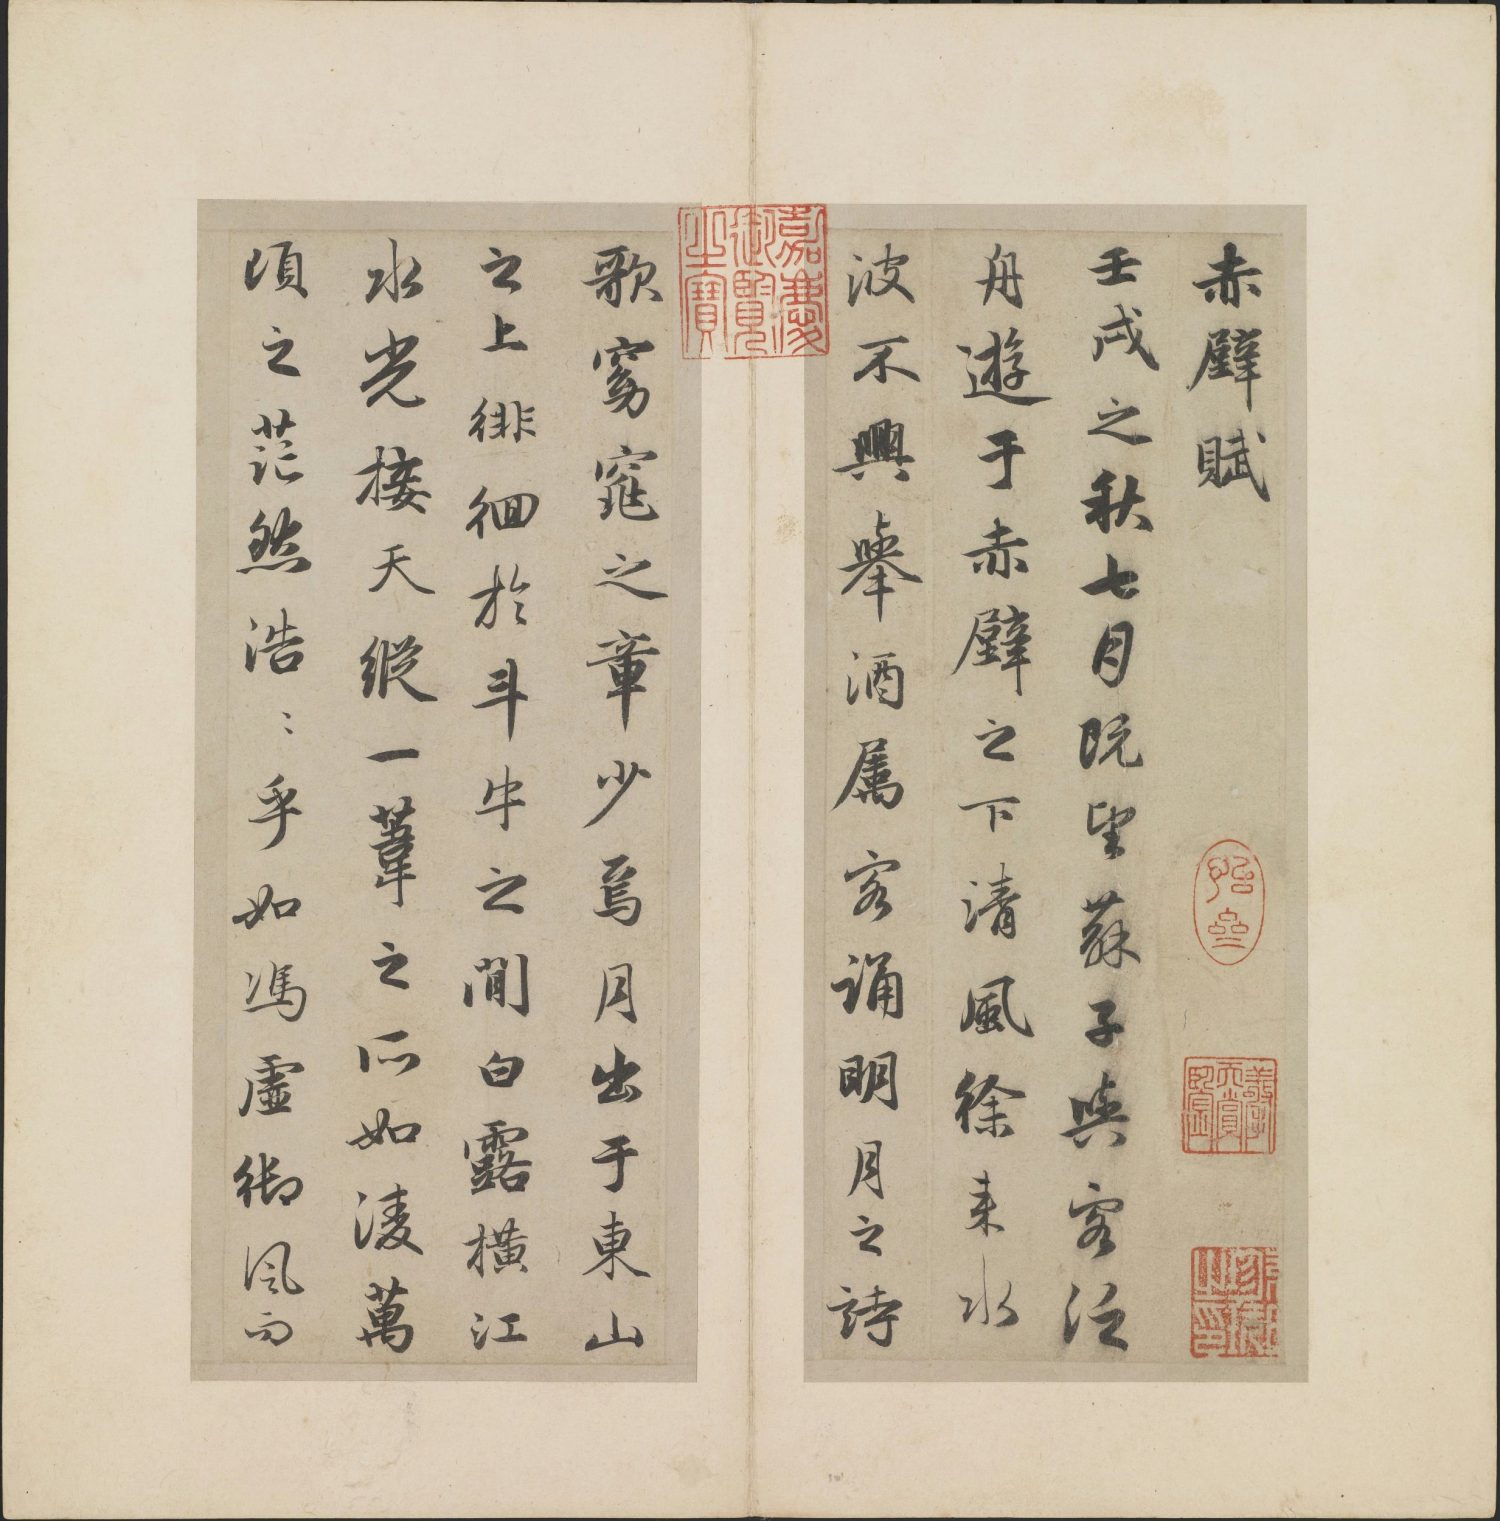 赤壁賦
壬戌之秋七月既望蘇子與客泛
舟遊于赤壁之下清風徐來水
波不興舉酒属客誦明月之詩
歌窈窕之章少焉月出于東山
之上徘徊於斗牛之間白露橫江
水光接天縱一葦之所如凌萬
頃之茫然浩〻乎如馮虛御風而
嘉慶
御覽
之寶